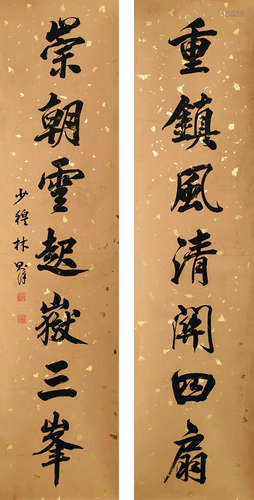 重鎮風清開四扇
崇朝雲起嶽三峯
少穆林則徐